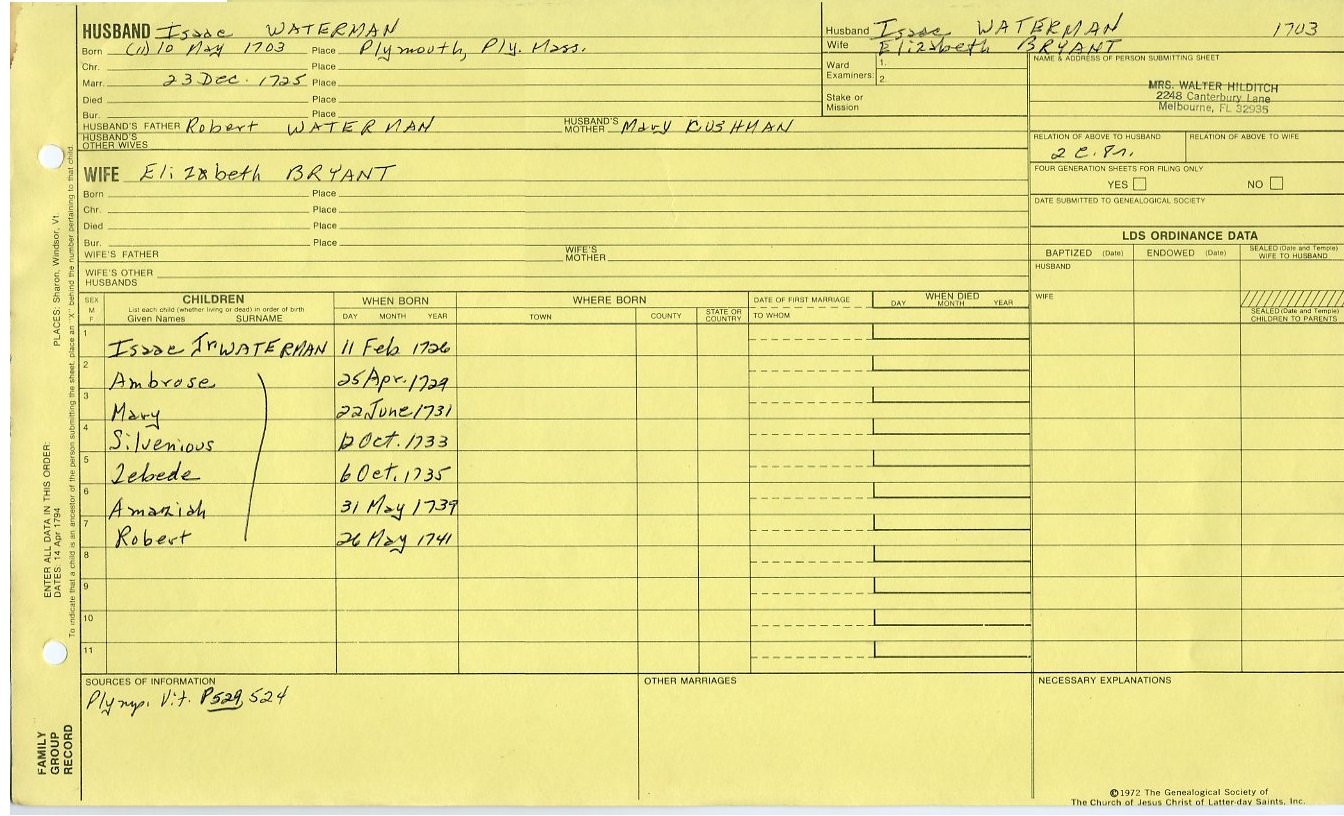 HUSBAND Isaac WATERMAN
Born (11) 10 May 1703 Place Plymouth, Ply. Mass.
Chr. Place
Marr. 23 Dec. 1725 Place
Died Place
Bur. Place
HUSBAND'S FATHER Robert WATERMAN HUSBAND'S MOTHER Mary CUSHMAN
HUSBAND'S OTHER WIVES
WIFE Elizabeth BRYANT
Born Place
Chr. Place
Died Place
Bur. Place
WIFE'S FATHER WIFE'S MOTHER
WIFE'S OTHER HUSBANDS
Husband Isaac WATERMAN 1703
Wife Elizabeth BRYANT
Ward Examiners: 1.
2.
Stake or Mission
NAME & ADDRESS OF PERSON SUBMITTING SHEET
MRS. WALTER HILDITCH
2248 Canterbury Lane
Melbourne, FL 32935
RELATION OF ABOVE TO HUSBAND RELATION OF ABOVE TO WIFE
FOUR GENERATION SHEETS FOR FILING ONLY
YES NO
DATE SUBMITTED TO GENEALOGICAL SOCIETY
LDS ORDINANCE DATA
BAPTIZED (Date) ENDOWED (Date) SEALED (Date and Temple) WIFE TO HUSBAND
HUSBAND
WIFE
SEALED (Date and Temple) CHILDREN TO PARENTS
SEX M F
CHILDREN
List each child (whether living or dead) in order of birth
Given Names SURNAME
WHEN BORN
DAY MONTH YEAR
WHERE BORN
TOWN COUNTY STATE OR COUNTRY
DATE OF FIRST MARRIAGE
TO WHOM
WHEN DIED
DAY MONTH YEAR
1 Isaac Jr WATERMAN 11 Feb 1726
2 Ambrose 25 Apr. 1729
3 Mary 22 June 1731
4 Silvenious Oct. 1733
5 Zebede 6 Oct. 1735
6 Amaziah 31 May 1739
7 Robert 26 May 1741
8
9
10
11
SOURCES OF INFORMATION
Plymp. Vit. P529, 524
OTHER MARRIAGES
NECESSARY EXPLANATIONS
©1972 The Genealogical Society of
The Church of Jesus Christ of Latter-day Saints, Inc.
FAMILY GROUP RECORD
ENTER ALL DATA IN THIS ORDER:
DATES: 14 Apr 1794
PLACES: Sharon, Windsor, Vt.
To indicate that a child is an ancestor of the person submitting the sheet, place an "X" behind the number pertaining to that child.